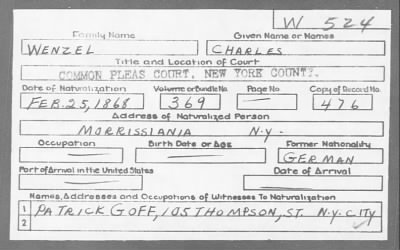 W 524
Family Name Given Name or Names
WENZEL CHARLES
Title and Location of Court
COMMON PLEAS COURT, NEW YORK COUNTY.
Date of Naturalization Volume or Bundle No. Page No. Copy of Record No.
FEB. 25, 1868 369 — 476
Address of Naturalized Person
MORRISSIANIA N.Y.-
Occupation Birth Date or Age Former Nationality
— — GERMAN
Port of Arrival in the United States Date of Arrival
— —
Names, Addresses and Occupations of Witnesses To Naturalization
1 PATRICK GOFF, 105 THOMPSON, ST. N.Y. CITY
2